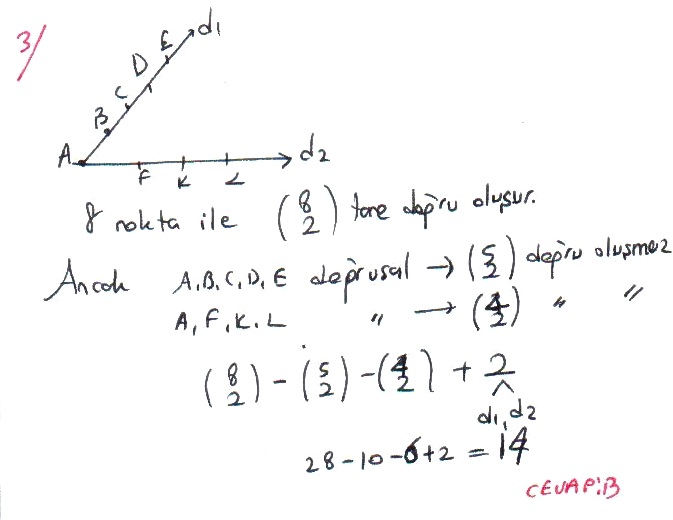 3/
d1
E
D
C
B
A
d2
F K L
8 nokta ile (8 2) tane doğru oluşur.
Ancak A,B,C,D,E doğrusal → (5 2) doğru oluşmaz
A, F, K, L " → (4 2) " "
(8 2) - (5 2) - (4 2) + 2
d1, d2
28-10-6+2 = 14
CEVAP:B